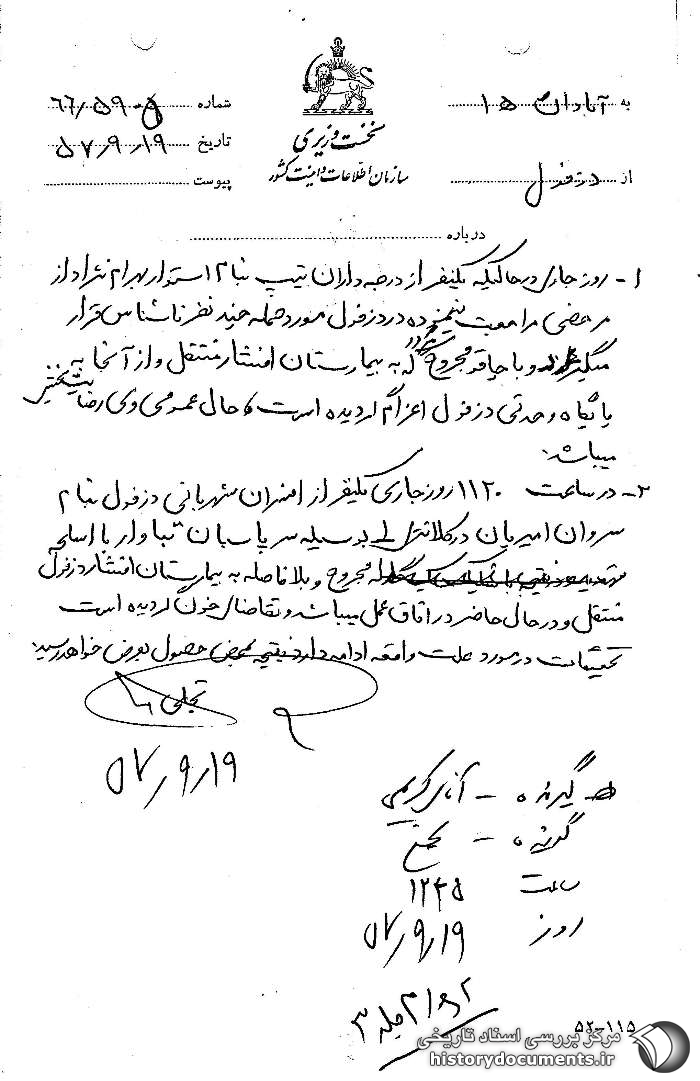 به آبادان ۱۵
شماره ۶۶/۵۹-۵
نخست وزیری
تاریخ ۵۷/۹/۱۹
سازمان اطلاعات و امنیت کشور
از دزفول
پیوست
درباره
۱- روز جاری در حالیکه یکنفر از درجه داران تیپ ۲ بنام استوار بهرام نژاد از
مرخصی مراجعت مینموده در دزفول مورد حمله چند نفر ناشناس قرار
میگیرد و با چاقو مجروح که به بیمارستان افشار منتقل و از آنجا به
پایگاه وحدتی دزفول اعزام گردیده است حال عمومی وی رضایتبخش
میباشد.
۲- در ساعت ۱۱۲۰ روز جاری یکنفر از افسران شهربانی دزفول بنام
سروان امیریان در کلانتری بوسیله سر پاسبان با اسلحه
مجروح و بلافاصله به بیمارستان افشار دزفول
منتقل و در حال حاضر در اتاق عمل میباشد و تقاضای خون گردیده است
تحقیقات در مورد علت واقعه ادامه دارد نتیجه بمحض حصول بعرض خواهد رسید.
تجلی
۵۷/۹/۱۹
گیرنده - آقای کریمی
گوینده -
ساعت ۱۲۴۵
روز ۵۷/۹/۱۹
جلد ۳
۵۲-۱۱۵
مرکز بررسی اسناد تاریخی
historydocuments.ir